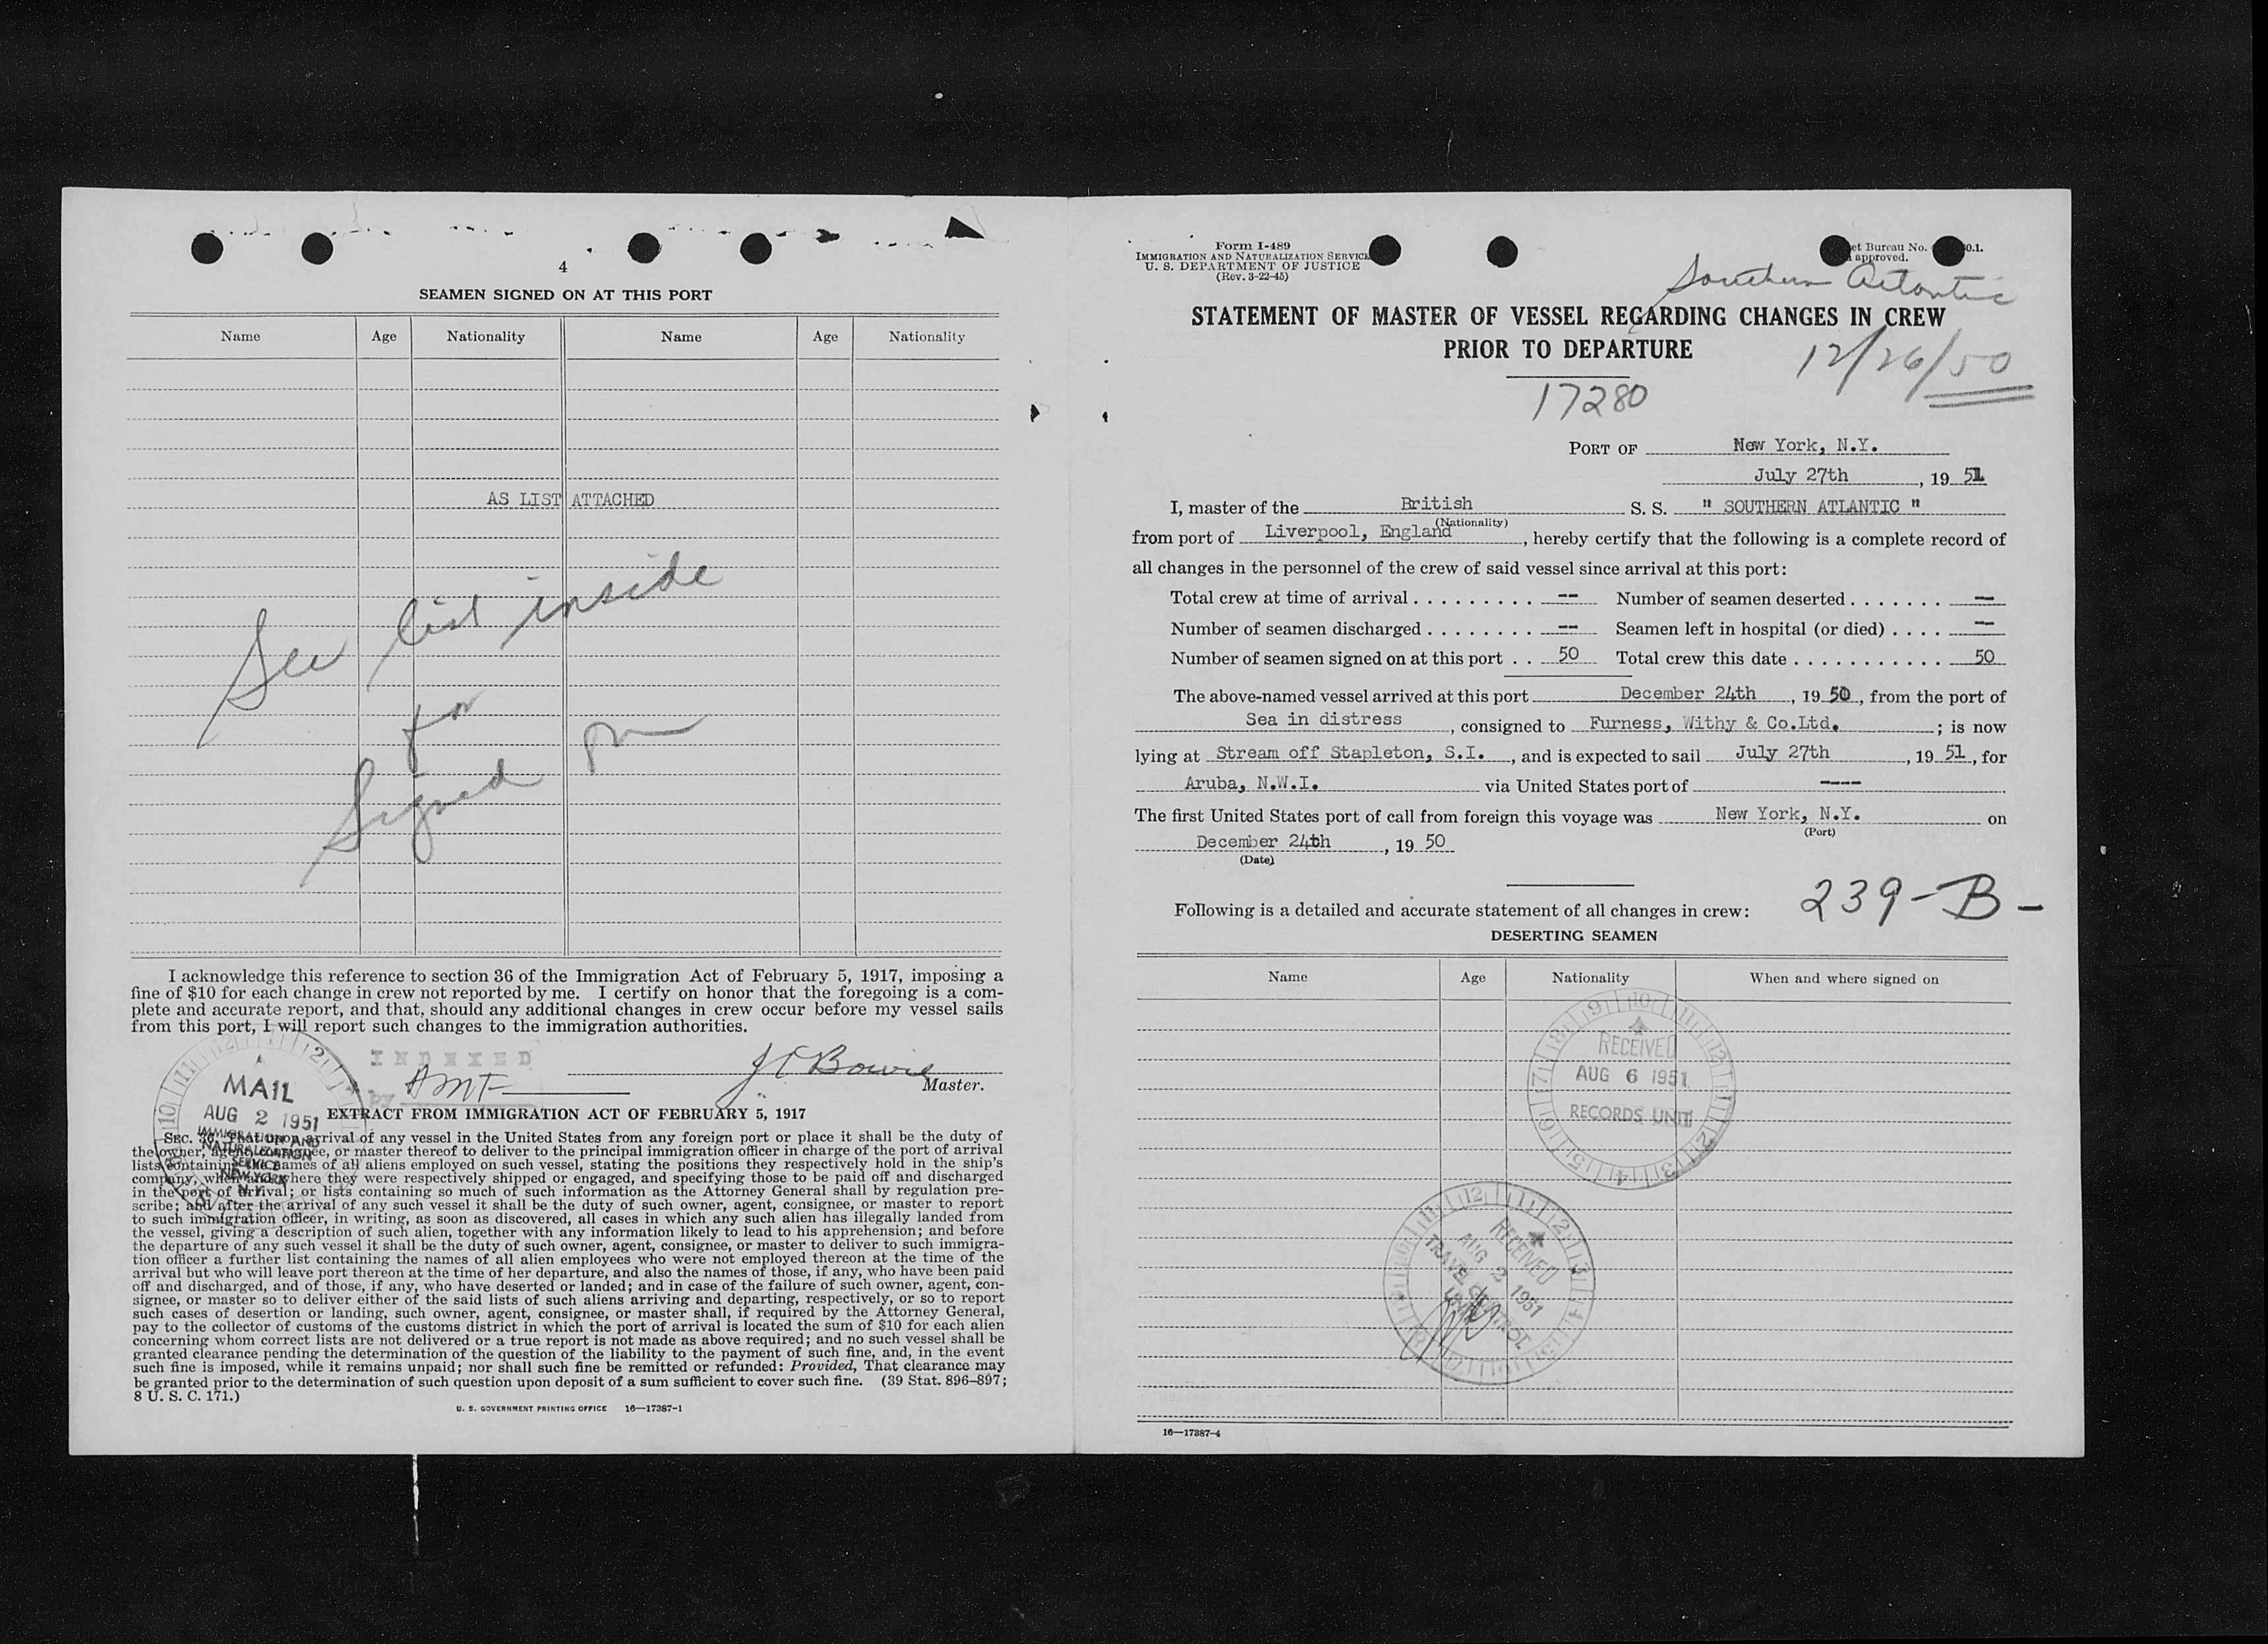 4
SEAMEN SIGNED ON AT THIS PORT
Name Age Nationality Name Age Nationality
AS LIST ATTACHED
See list inside
for
Signed on
I acknowledge this reference to section 36 of the Immigration Act of February 5, 1917, imposing a
fine of $10 for each change in crew not reported by me. I certify on honor that the foregoing is a com-
plete and accurate report, and that, should any additional changes in crew occur before my vessel sails
from this port, I will report such changes to the immigration authorities.
INDEXED
by AMF
J C Bowie
Master.
MAIL
AUG 2 1951
IMMIGRATION AND
NATURALIZATION
SERVICE
NEW YORK
N.Y.
EXTRACT FROM IMMIGRATION ACT OF FEBRUARY 5, 1917
SEC. 36. That upon arrival of any vessel in the United States from any foreign port or place it shall be the duty of
the owner, agent, consignee, or master thereof to deliver to the principal immigration officer in charge of the port of arrival
lists containing the names of all aliens employed on such vessel, stating the positions they respectively hold in the ship's
company, when and where they were respectively shipped or engaged, and specifying those to be paid off and discharged
in the port of arrival; or lists containing so much of such information as the Attorney General shall by regulation pre-
scribe; and after the arrival of any such vessel it shall be the duty of such owner, agent, consignee, or master to report
to such immigration officer, in writing, as soon as discovered, all cases in which any such alien has illegally landed from
the vessel, giving a description of such alien, together with any information likely to lead to his apprehension; and before
the departure of any such vessel it shall be the duty of such owner, agent, consignee, or master to deliver to such immigra-
tion officer a further list containing the names of all alien employees who were not employed thereon at the time of the
arrival but who will leave port thereon at the time of her departure, and also the names of those, if any, who have been paid
off and discharged, and of those, if any, who have deserted or landed; and in case of the failure of such owner, agent, con-
signee, or master so to deliver either of the said lists of such aliens arriving and departing, respectively, or so to report
such cases of desertion or landing, such owner, agent, consignee, or master shall, if required by the Attorney General,
pay to the collector of customs of the customs district in which the port of arrival is located the sum of $10 for each alien
concerning whom correct lists are not delivered or a true report is not made as above required; and no such vessel shall be
granted clearance pending the determination of the question of the liability to the payment of such fine, and, in the event
such fine is imposed, while it remains unpaid; nor shall such fine be remitted or refunded: Provided, That clearance may
be granted prior to the determination of such question upon deposit of a sum sufficient to cover such fine. (39 Stat. 896–897;
8 U. S. C. 171.)
U. S. GOVERNMENT PRINTING OFFICE 16—17387-1
Form I-489
IMMIGRATION AND NATURALIZATION SERVICE
U. S. DEPARTMENT OF JUSTICE
(Rev. 3-22-45)
et Bureau No. 0.1.
approved.
Southern Atlantic
STATEMENT OF MASTER OF VESSEL REGARDING CHANGES IN CREW
PRIOR TO DEPARTURE
12/26/50
17280
PORT OF New York, N.Y.
July 27th, 19 51
I, master of the British S. S. " SOUTHERN ATLANTIC "
(Nationality)
from port of Liverpool, England, hereby certify that the following is a complete record of
all changes in the personnel of the crew of said vessel since arrival at this port:
Total crew at time of arrival . . . . . . . . . . -- Number of seamen deserted . . . . . . . --
Number of seamen discharged . . . . . . . . -- Seamen left in hospital (or died) . . . . --
Number of seamen signed on at this port . . 50 Total crew this date . . . . . . . . . . . 50
The above-named vessel arrived at this port December 24th, 19 50, from the port of
Sea in distress, consigned to Furness, Withy & Co.Ltd. ; is now
lying at Stream off Stapleton, S.I., and is expected to sail July 27th, 19 51, for
Aruba, N.W.I. via United States port of ----
The first United States port of call from foreign this voyage was New York, N.Y. on
(Port)
December 24th, 19 50
(Date)
239-B-
Following is a detailed and accurate statement of all changes in crew:
DESERTING SEAMEN
Name Age Nationality When and where signed on
RECEIVED
AUG 6 1951
RECORDS UNIT
RECEIVED
AUG 2 1951
TRAVEL CONTROL
UNIT
16—17387-4